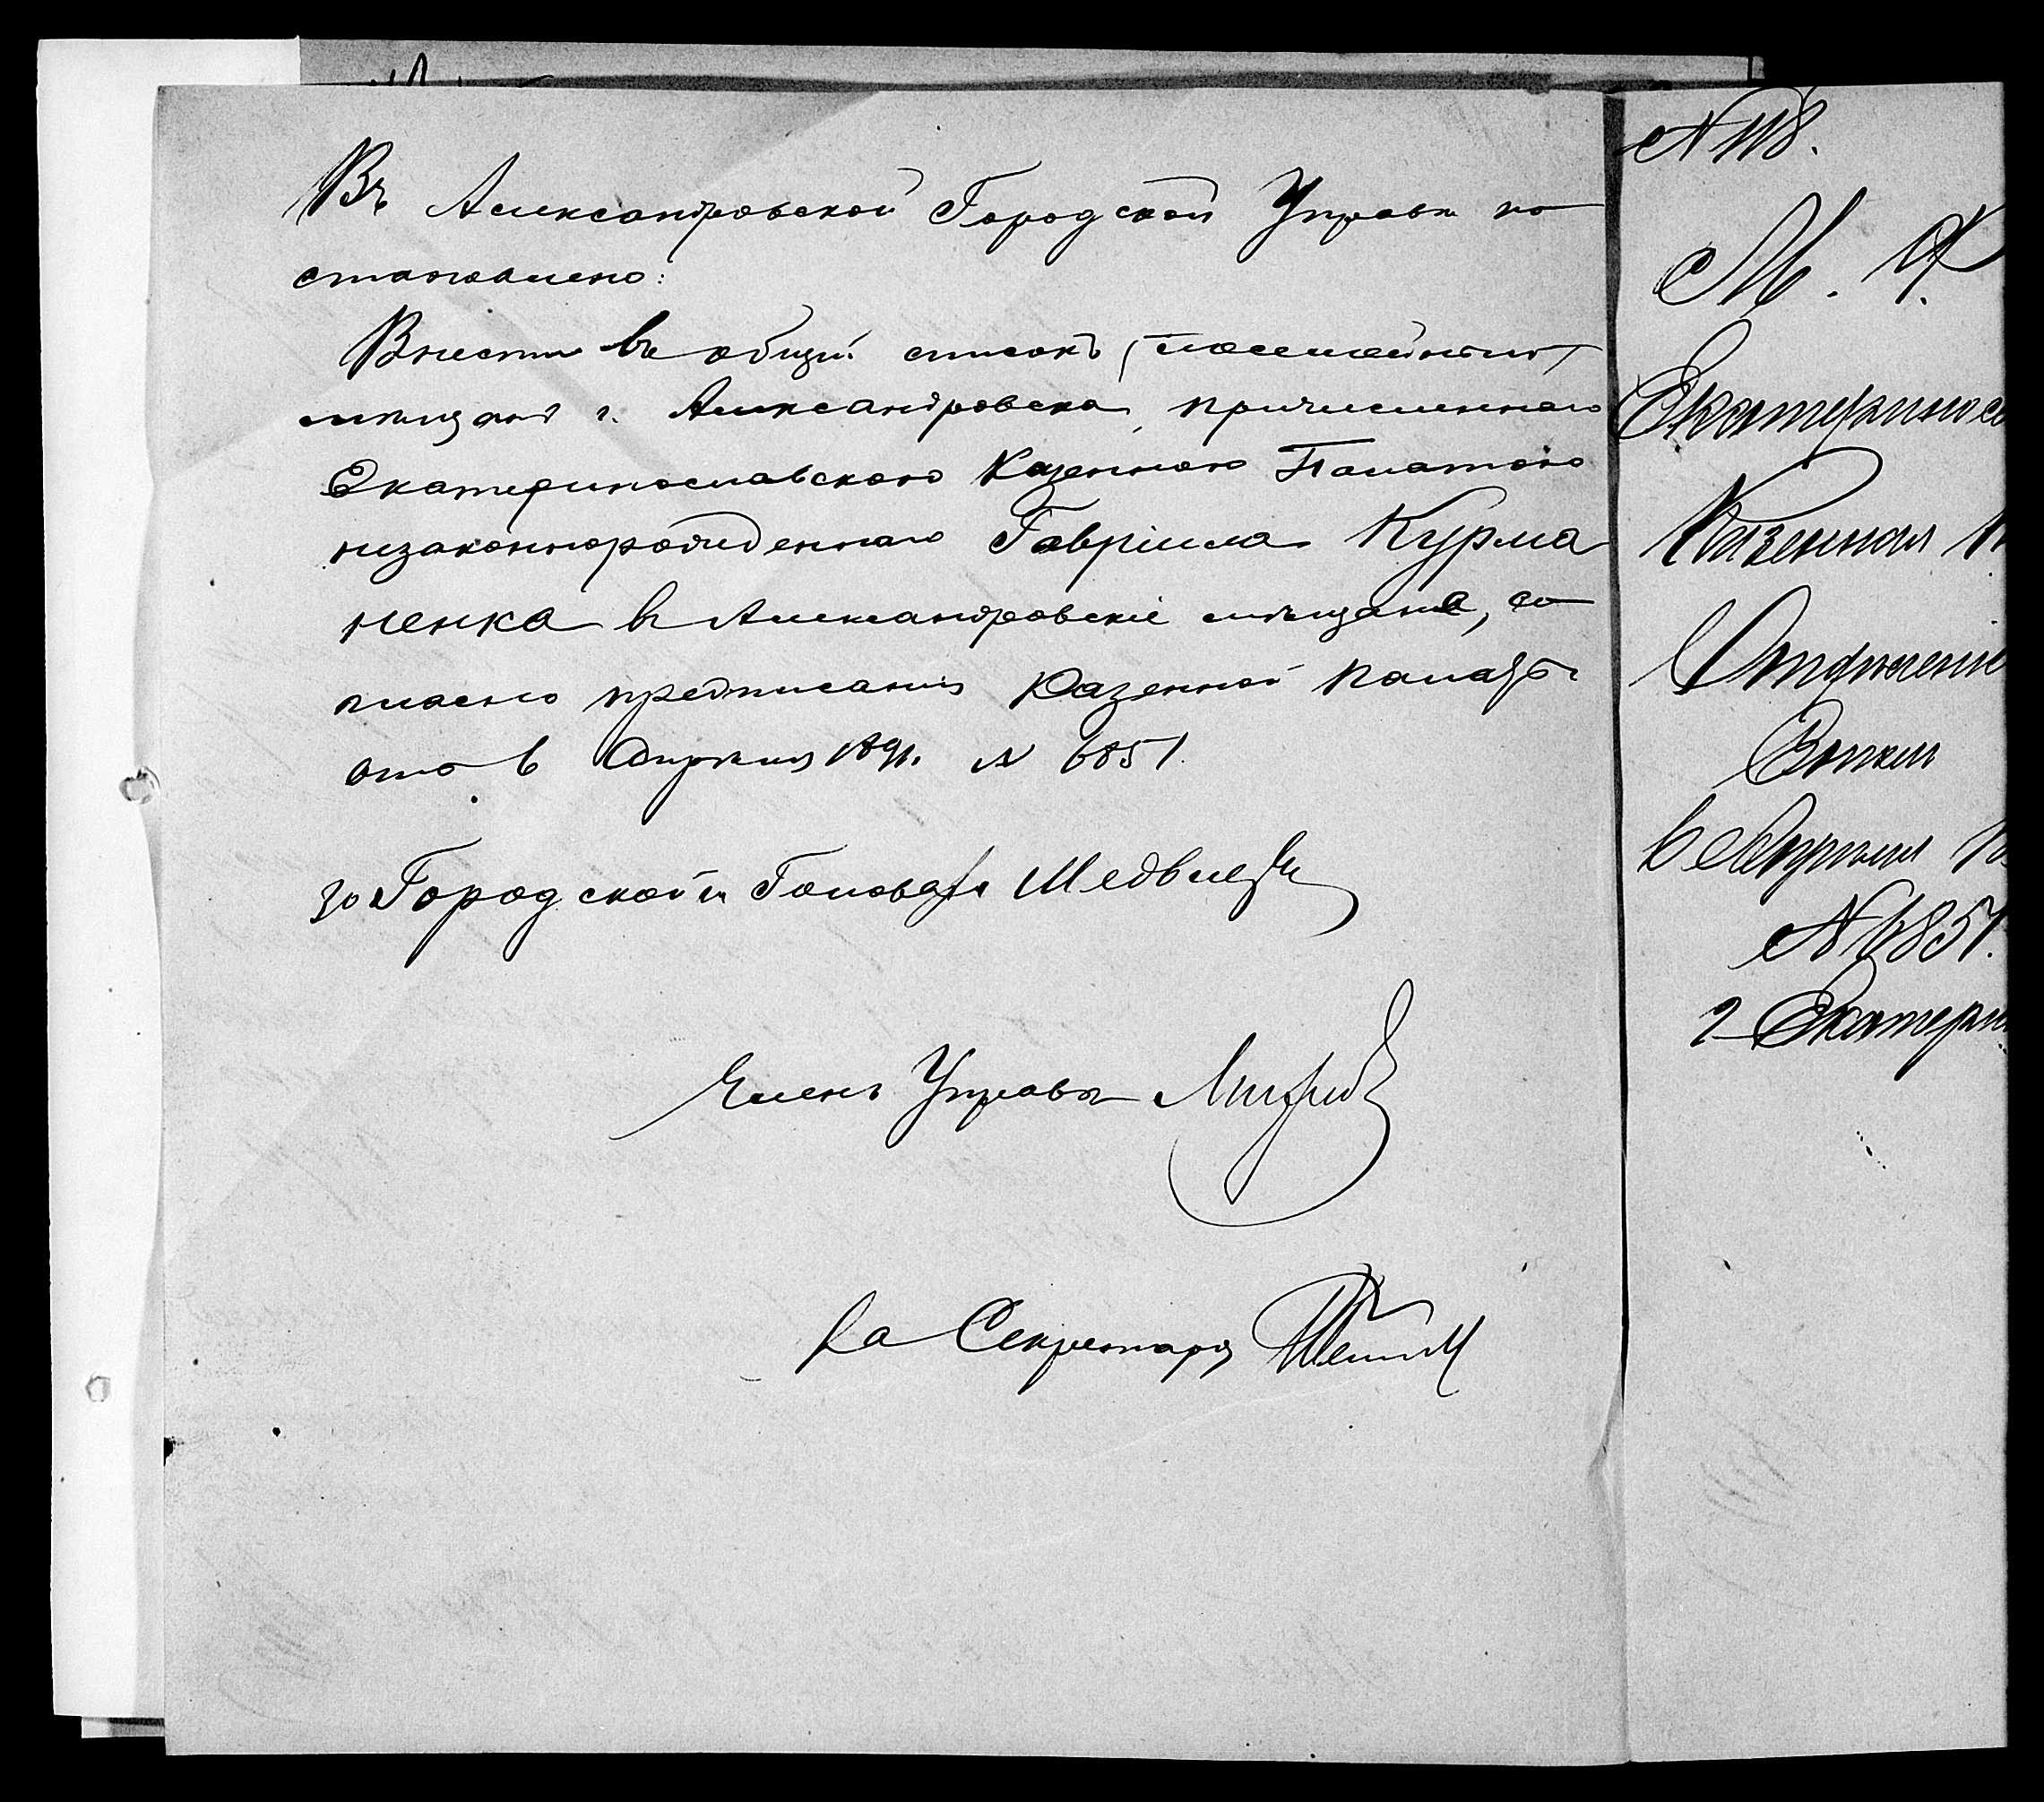 Въ Александровской Городской Управѣ по
становлено:
Внести въ общій списокъ посемейный
мѣщанъ г. Александровска, причисленнаго
Екатеринославскою Казенною Палатою
незаконнорожденнаго Гавріила Курма
ненка въ Александровскіе мѣщане, со
гласно предписанія Казенной Палаты
отъ 6 Апрѣля 1891. № 6851.
За Городского Голову
Членъ Управы
За Секретаря
№ 118.
М. Ф.
Екатериносл
Казенная П
Отдѣленіе
6 Апрѣля 18
№ 6851.
г. Екатерин